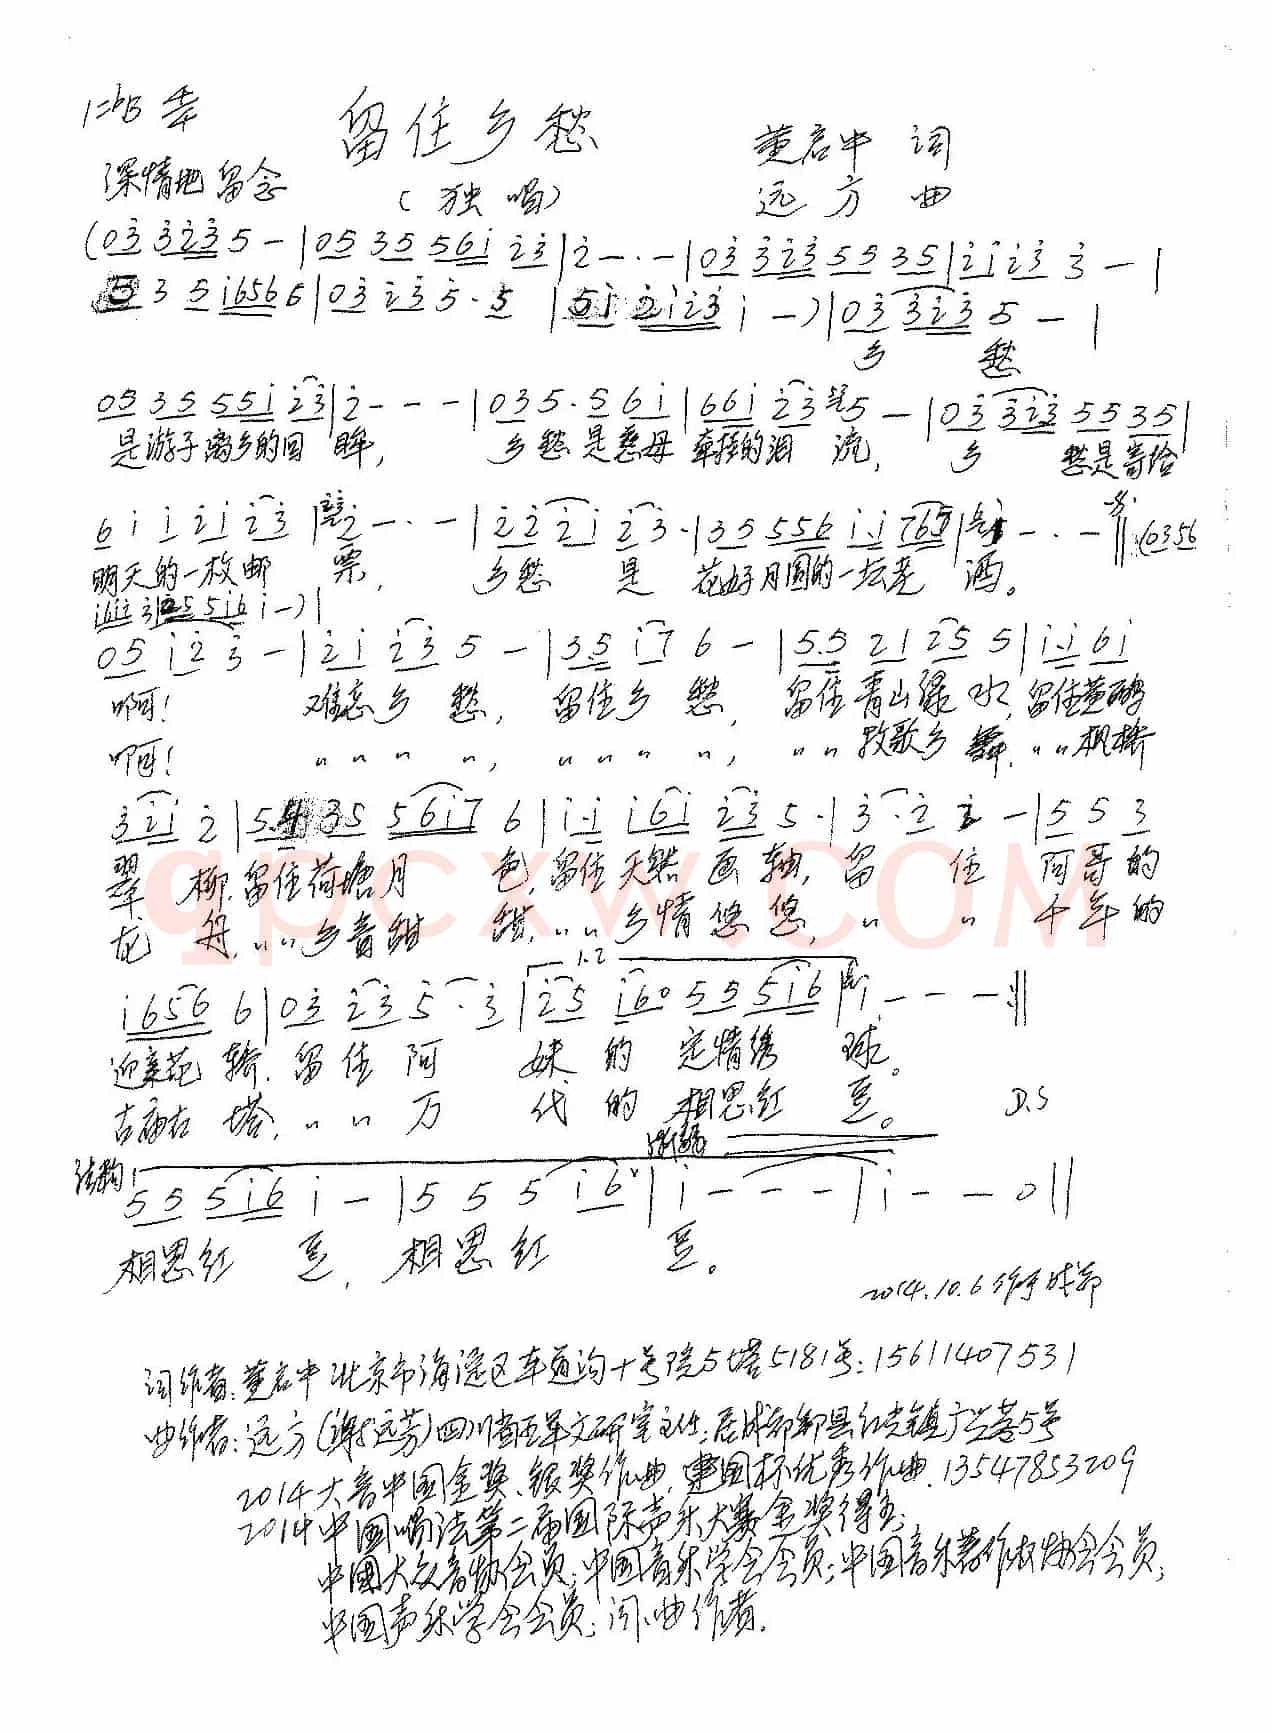 1=bB 4/4
留住乡愁
董启中 词
深情地 留念
(独唱)
远方 曲
(03 323 5 - | 05 35 561 23 | 2 - · - | 03 323 55 35 | 2123 3 - |
3 5 1656 6 | 03 23 5 · 5 | 51 2123 1 - ) | 03 323 5 - |
乡 愁
05 35 551 23 | 2 - - - | 035 · 5 61 | 661 23 5 - | 03 323 55 35 |
是游子离乡的回 眸, 乡愁是慈母牵挂的泪 流, 乡 愁是寄给
6 1 1 21 23 | 2 - · - | 22 221 23 · | 35 556 1·1 765 | - · - || (6356
明天的一枚邮 票, 乡愁 是 花好月圆的一坛老 酒。
5 516 1 - ) |
05 123 - | 21 23 5 - | 3·5 17 6 - | 5·5 21 25 5 | 1·1 61
啊! 难忘乡 愁, 留住乡 愁, 留住青山绿 水, 留住黄鹂
啊! 〃 〃 〃 〃, 〃 〃 〃 〃, 〃 〃 牧歌乡 〃 〃 枫桥
321 2 | 5·4 35 5617 6 | 1·1 161 23 5 · | 3 · 2 2 - | 5 5 3
翠 柳, 留住荷塘月 色, 留住天然画 轴, 留 住 阿哥的
龙 舟, 〃 〃 乡音甜 甜, 〃 〃 乡情悠 悠, 〃 〃 千年的
1656 6 | 03 23 5 · 3 | 25 160 55 516 | 1 - - - :||
1.2
迎亲花 轿, 留住阿 妹 的 定情绣 球。
古庙古 塔, 〃 〃 万 代 的 相思红 豆。 D.S
渐慢
结构
55 516 1 - | 5 5 5 16 | 1 - - - | 1 - - 0 ||
相思红 豆, 相思红 豆。
2014.10.6 作于成都
词作者: 董启中 北京市海淀区车道沟十号院5塔5181号: 15611407531
曲作者: 远方(谢远芳)四川省 文研室主任; 居成都郫县红光镇广兴巷5号
2014大音中国金奖、银奖作曲, 建国杯优秀作曲. 13547853209
2014中国唱法第二届国际声乐大赛金奖得主;
中国大众音协会员; 中国音乐学会会员; 中国音乐著作权协会会员;
中国声乐学会会员; 词、曲作者.
qpcxw.COM